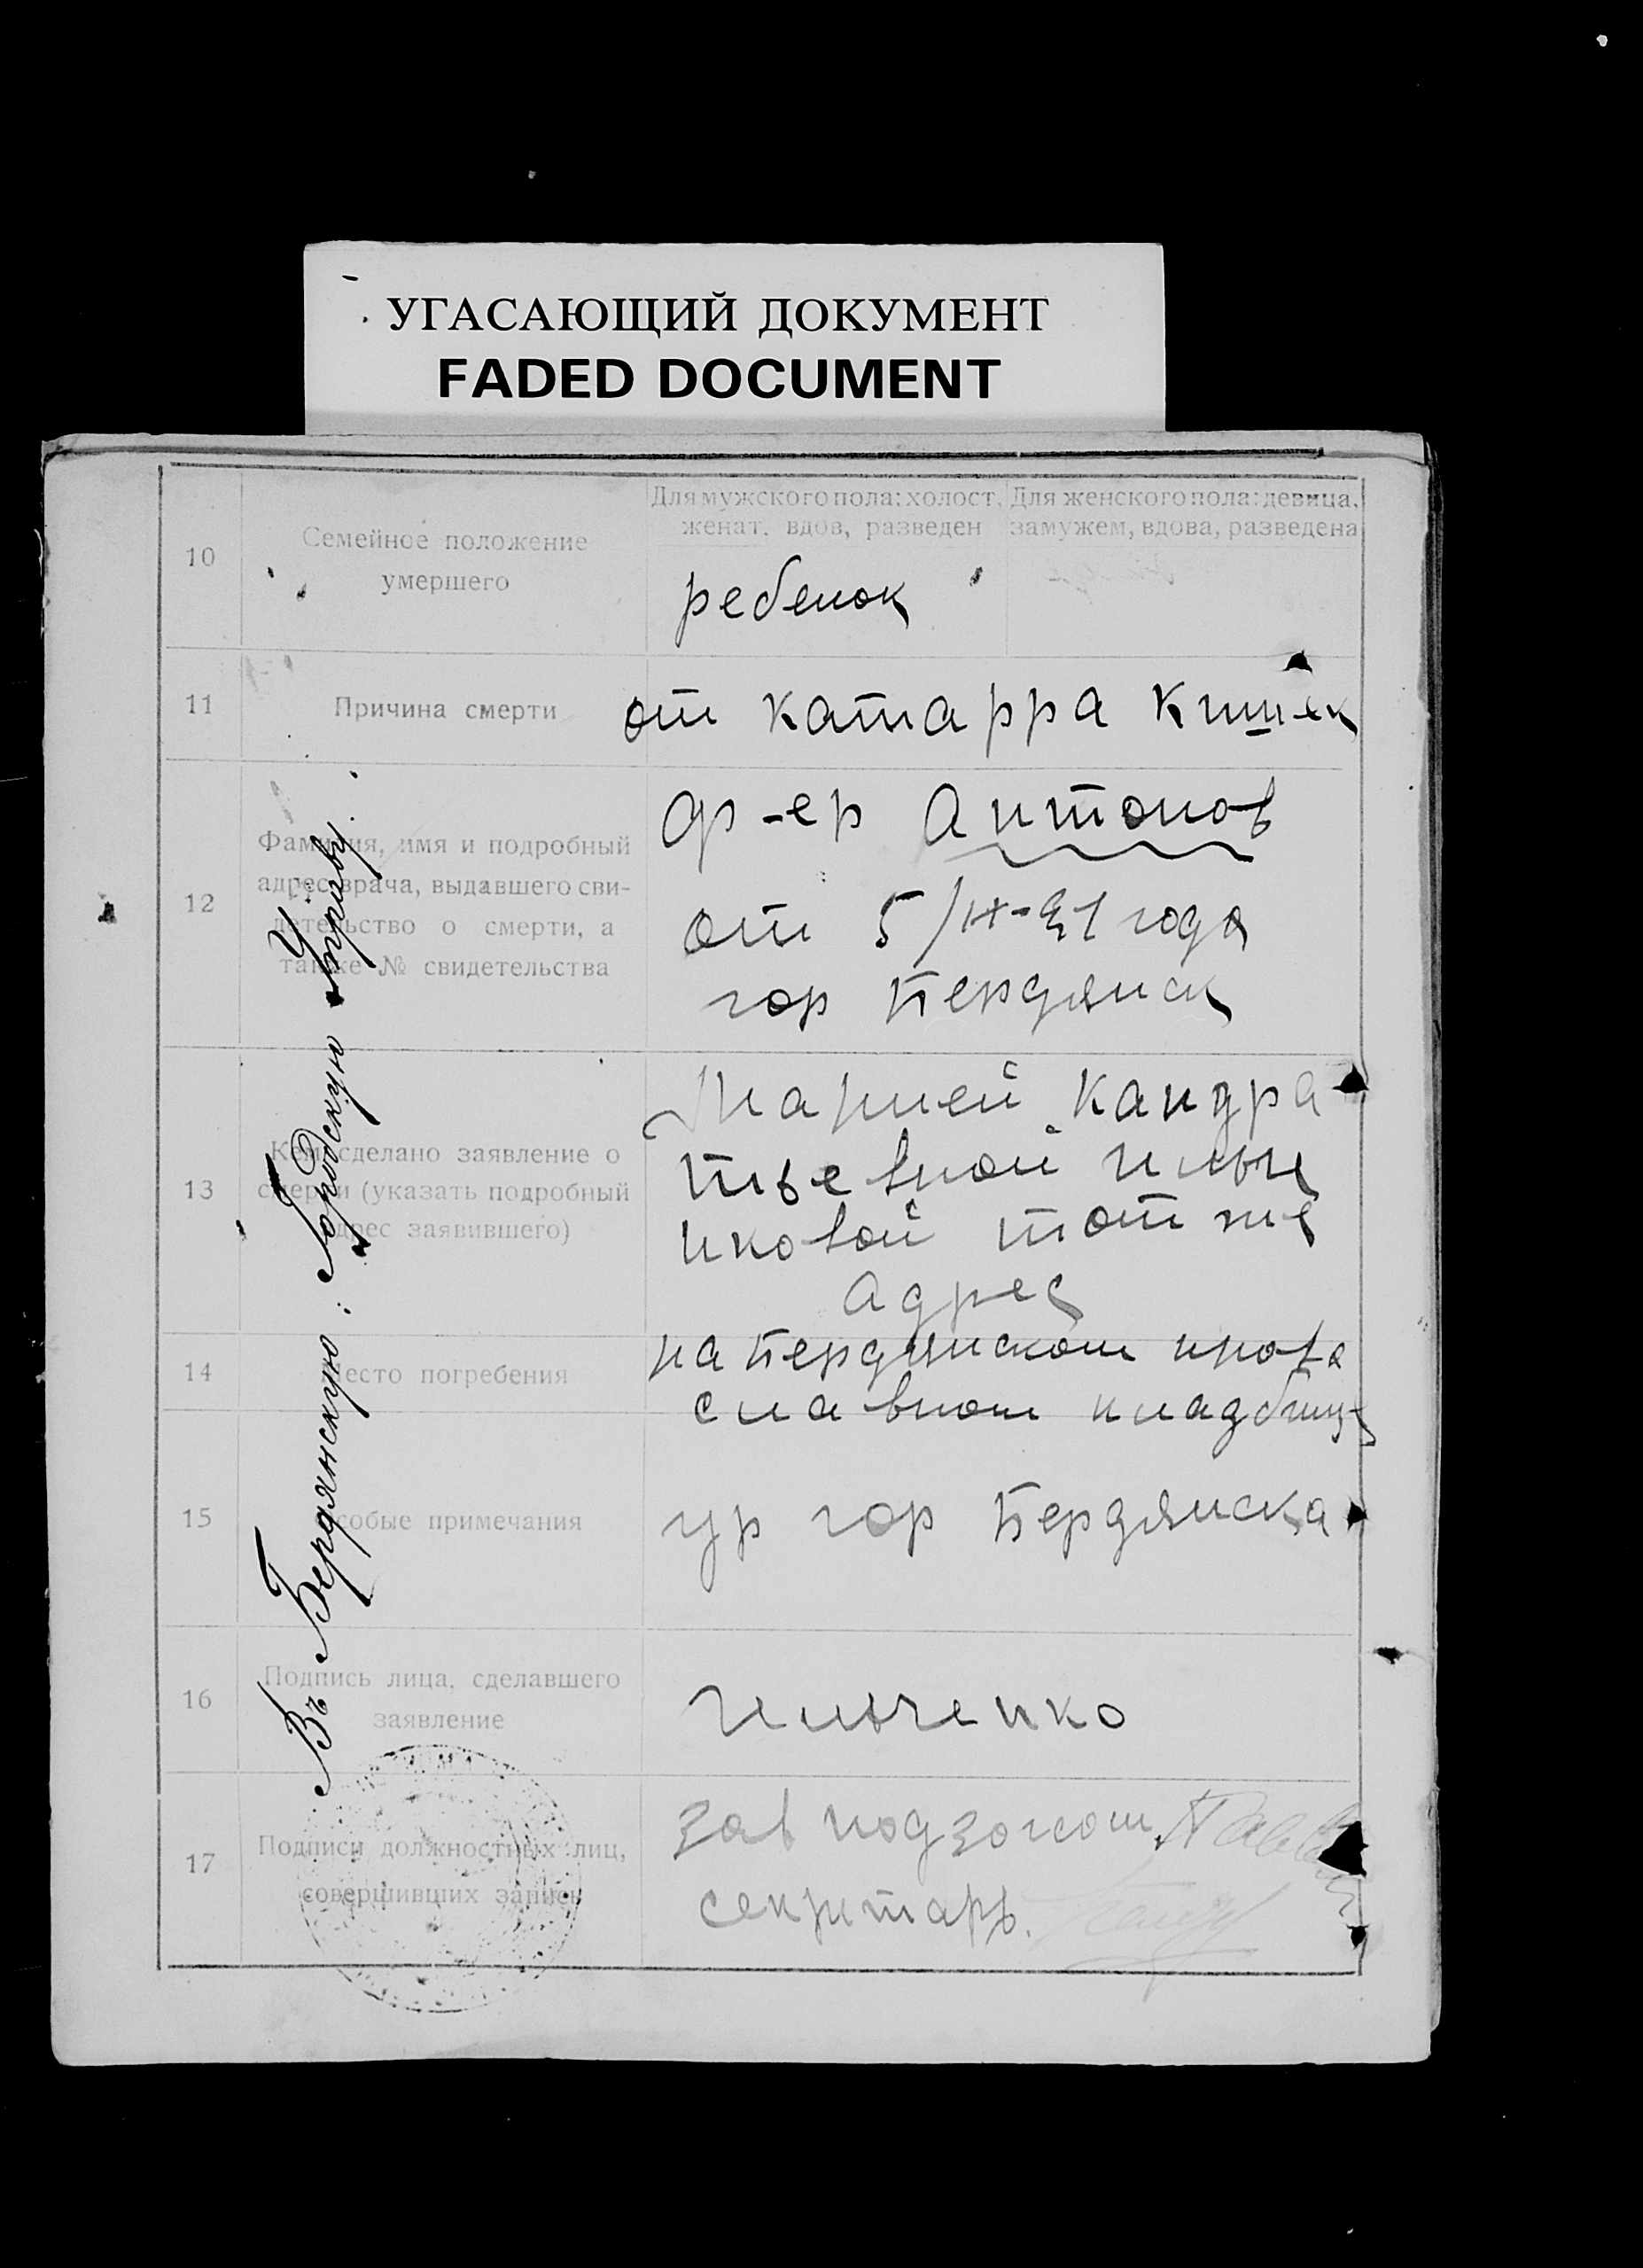 УГАСАЮЩИЙ ДОКУМЕНТ
FADED DOCUMENT
10
Семейное положение
умершего
Для мужского пола: холост,
женат, вдов, разведен
Для женского пола: девица,
замужем, вдова, разведена
ребенок
11
Причина смерти
от катарра кишек
12
Фамилия, имя и подробный
адрес врача, выдавшего сви-
детельство о смерти, а
также № свидетельства
ф-ер Антонов
от 5/IX-21 года
гор Бердянск
13
Кем сделано заявление о
смерти (указать подробный
адрес заявившего)
Марией Кандра
тьевной Ильи
нковой тот же
адрес
14
Место погребения
на Бердянском право
славном кладбище
15
Особые примечания
ур гор Бердянска
16
Подпись лица, сделавшего
заявление
Ильченко
17
Подписи должностных лиц,
совершивших запись
Зав подзагсом
секритарь
Въ Бердянскую Городскую Управу